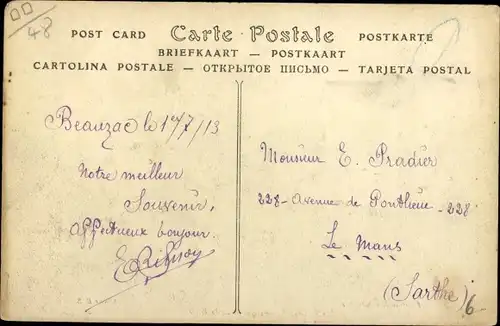 48
POST CARD Carte Postale POSTKARTE
BRIEFKAART — POSTKAART
CARTOLINA POSTALE — ОТКРЫТОЕ ПИСЬМО — TARJETA POSTAL
Beauzac le 1er/7/13
Notre meilleur
Souvenir,
Affectueux bonjour.
Monsieur E. Pradier
228 - Avenue de Pontlieue - 228
Le Mans
(Sarthe)
6